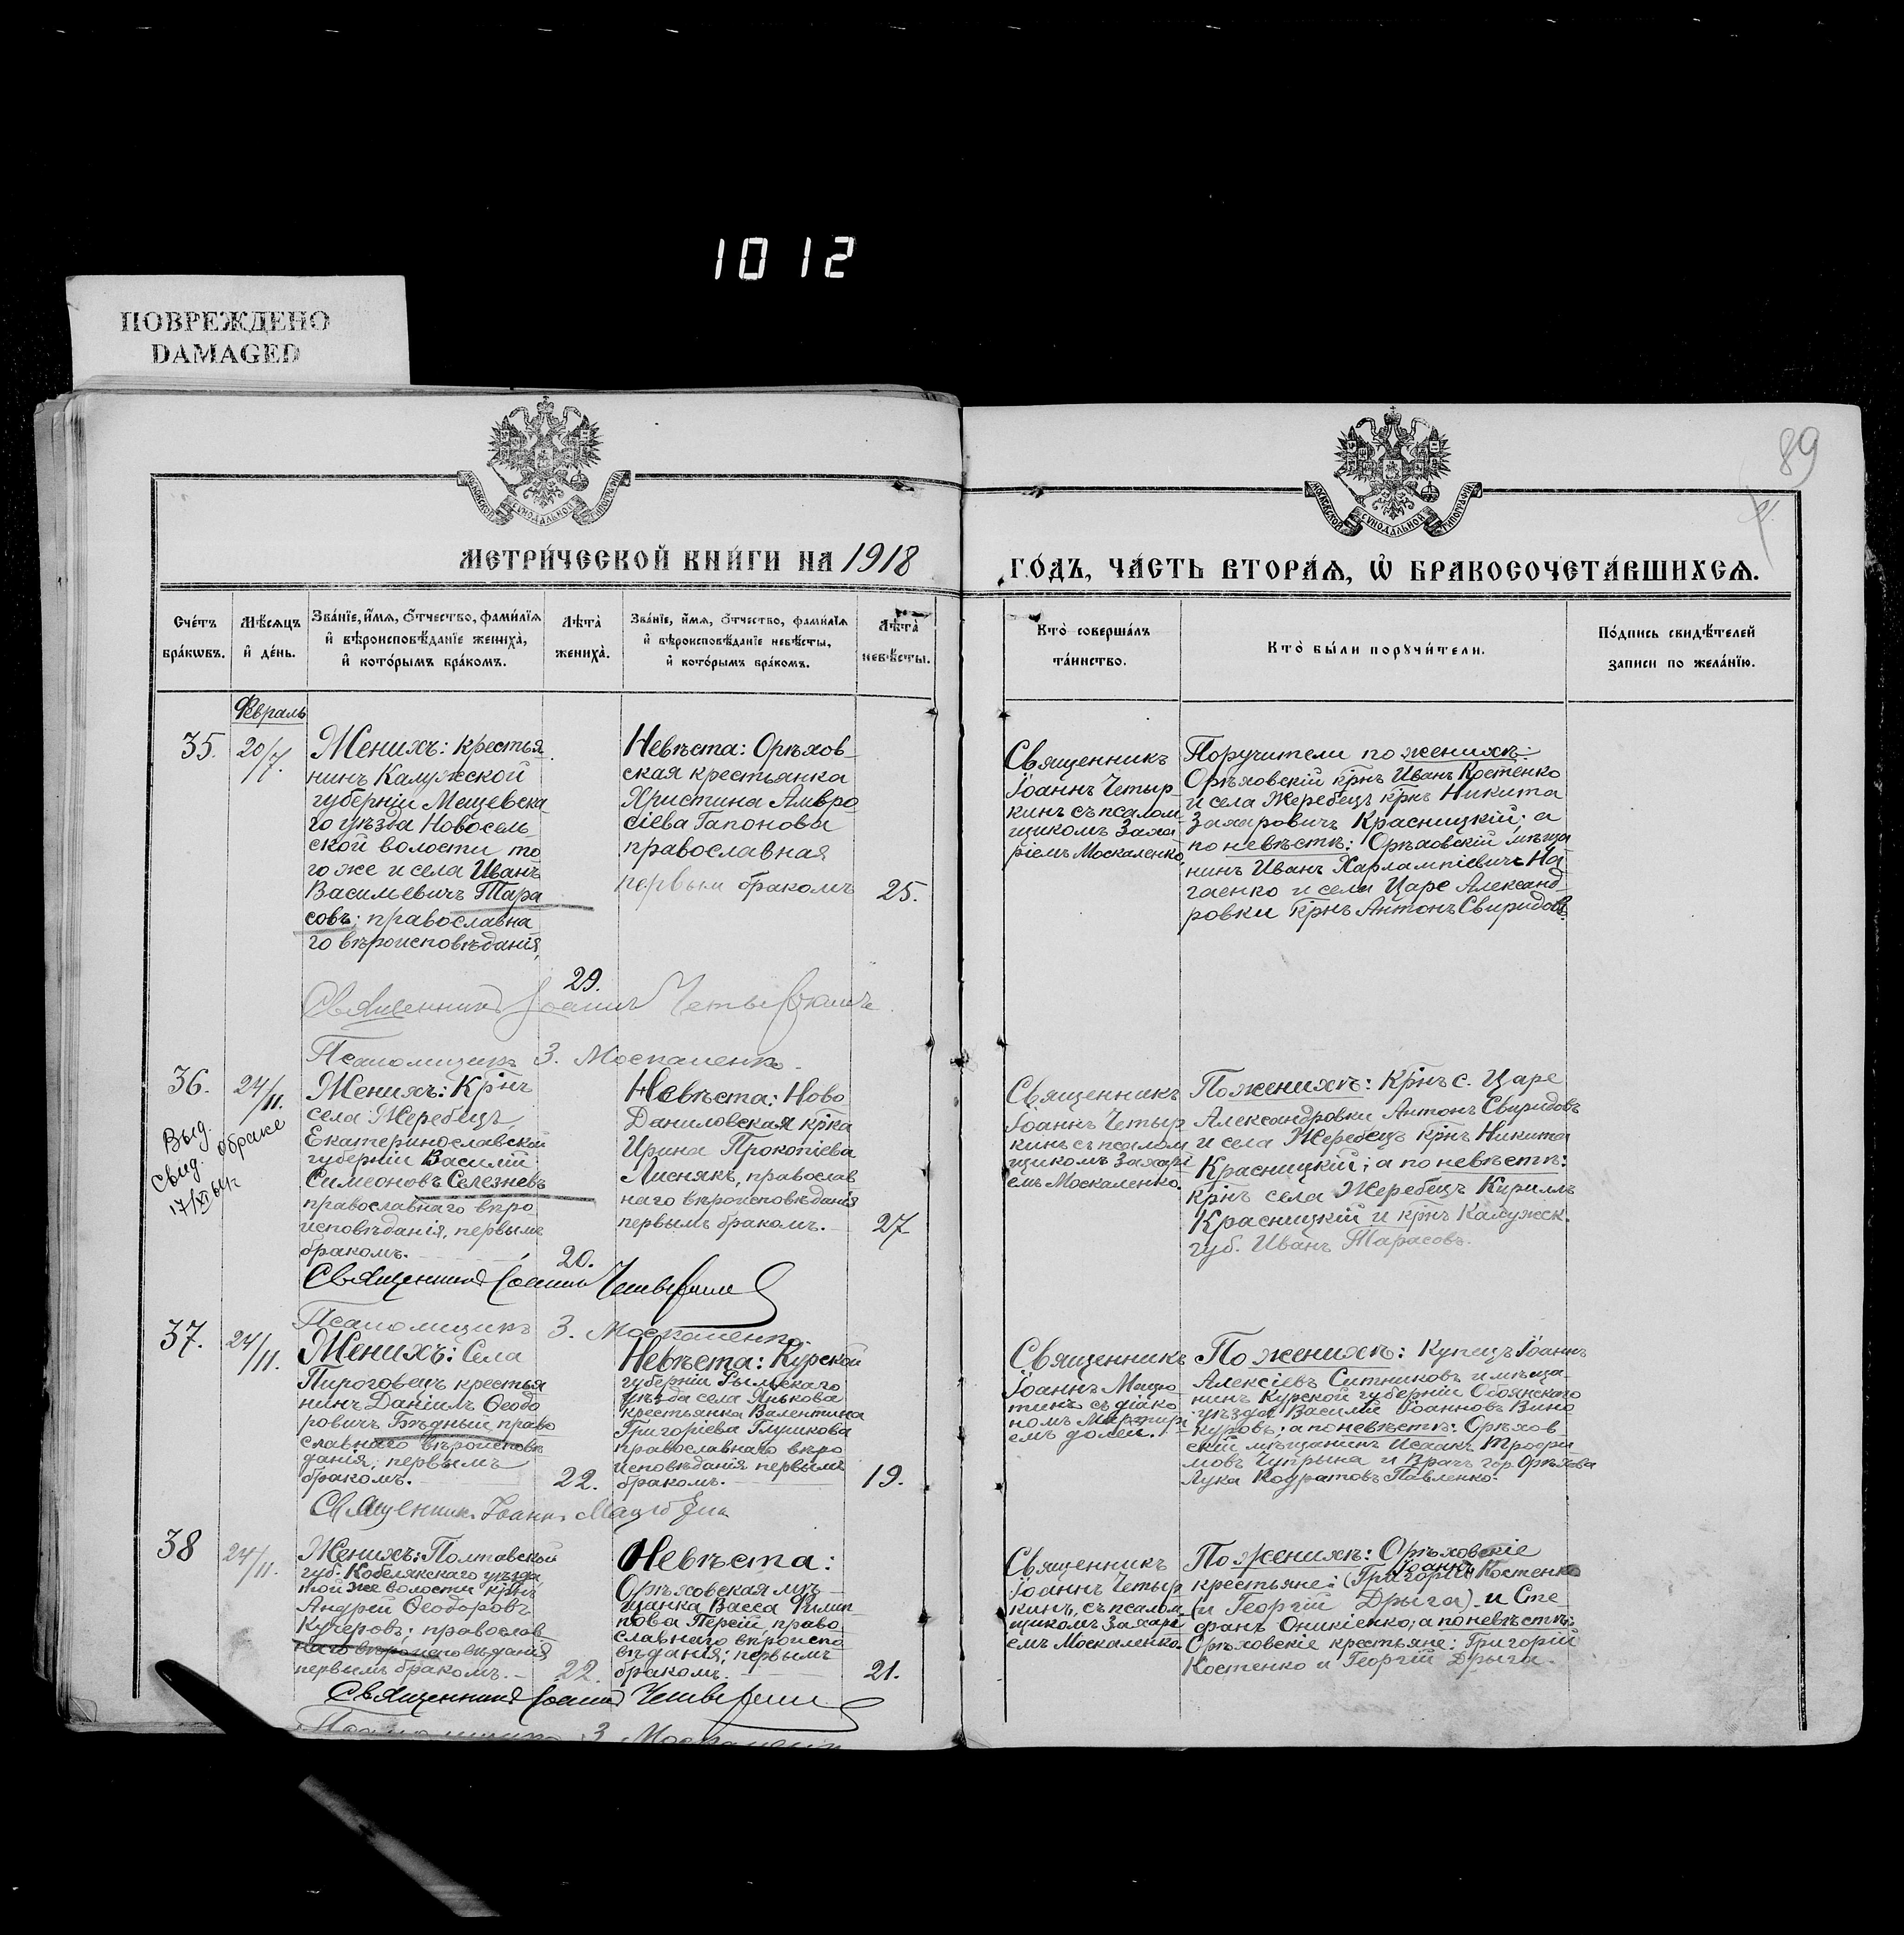 1012
ПОВРЕЖДЕНО
DAMAGED
89
МОСКОВСКОЙ СѴНОДАЛЬНОЙ ТИПОГРАФІИ
МОСКОВСКОЙ СѴНОДАЛЬНОЙ ТИПОГРАФІИ
МЕТРИ́ЧЕСКОЙ КНИ́ГИ НА 1918
ГО́ДЪ, ЧА́СТЬ ВТОРА́Ѧ, Ѽ БРАКОСОЧЕТА́ВШИХСѦ.
Сче́тъ
бра́кѡвъ.
Мѣ́сѧцъ
и҆ де́нь.
Зва́нїе, и҆́мѧ, ѻ҆́тчество, фами́лїѧ
и҆ вѣроисповѣ́данїе жениха̀,
и҆ кото́рымъ бра́комъ.
Лѣ̀та
жениха̀.
Зва́нїе, и҆́мѧ, ѻ҆́тчество, фами́лїѧ
и҆ вѣроисповѣ́данїе невѣ́сты,
и҆ кото́рымъ бра́комъ.
Лѣ̀та
невѣ́сты.
Кто̀ соверша́лъ
та́инство.
Кто̀ бы́ли порꙋчи́тели.
По́дпись свидѣ́телей
записи по жела́нїю.
Февраль
35.
20/7.
Женихъ: крестья
нинъ Калужской
губерніи Мещевска
го уѣзда Новосель
ской волости то
го же и села Иванъ
Васильевичъ Тара
совъ; православна
го вѣроисповѣданія,
29.
Невѣста: Орѣхов
ская крестьянка
Христина Амвро
сіева Гапонова
православная
первым бракомъ
25.
Священникъ
Іоаннъ Четыр
кинъ съ псалом
щикомъ Заха
ріемъ Москаленко.
Поручители по женихѣ:
Орѣховскій крнъ Иванъ Костенко
и села Жеребецъ крнъ Никита
Захаровичъ Красницкій; а
по невѣстѣ: Орѣховскій мѣща
нинъ Иванъ Харлампіевичъ На
гаенко и села Царе Александ
ровки крнъ Антонъ Свиридовъ
Священникъ Іоаннъ Четыркинъ
Псаломщикъ З. Москаленко.
36.
24/11.
Выд.
Свид. о браке
Женихъ: Крнъ
села Жеребецъ,
Екатеринославской
губерніи Василій
Симеоновъ Селезневъ
православнаго вѣро
исповѣданія, первымъ
бракомъ.
20.
Невѣста: Ново
Даниловская крка
Ирина Прокопіева
Лиснякъ, православ
наго вѣроисповѣданія
первымъ бракомъ.
27
Священникъ
Іоаннъ Четыр
кинъ съ псалом
щикомъ Захарі
емъ Москаленко.
По женихѣ: Крнъ с. Царе
Александровки Антонъ Свиридовъ
и села Жеребецъ крнъ Никита
Красницкій; а по невѣстѣ:
крнъ села Жеребецъ Кириллъ
Красницкій и крнъ Калужск.
губ. Иванъ Тарасовъ.
Священникъ Іоаннъ Четыркинъ
Псаломщикъ З. Москаленко.
37.
24/11.
Женихъ: Села
Пироговецъ крестья
нинъ Даніилъ Ѳеодо
ровичъ Бѣдный право
славнаго вѣроисповѣ
данія, первымъ
бракомъ.
22.
Невѣста: Курской
губерніи Рыльскаго
уѣзда села Янькова
крестьянка Валентина
Григоріева Глушкова
православнаго вѣро
исповѣданія первымъ
бракомъ.
19.
Священникъ
Іоаннъ
съ діако
номъ
По женихѣ: Купецъ Іоаннъ
Алексіевъ Ситниковъ и мѣща
нинъ Курской губерніи Обоянскаго
уѣзда Василій Іоанновъ Вино
куровъ; а по невѣстѣ: Орѣхов
скій мѣщанинъ Исаакъ Трофи
мовъ Чупрына и Врачъ гор. Орѣхова
Лука Кодратовъ Павленко.
Священникъ Іоаннъ
38
24/11.
Женихъ: Полтавской
губ. Кобелякскаго уѣзда
той же волости крнъ
Андрей Ѳеодоровъ
Кучеровъ; православ
наго вѣроисповѣданія
первымъ бракомъ.
22.
Невѣста:
Орѣховская мѣ
щанка Васса Филип
пова Перейн, право
славнаго вѣроиспо
вѣданія; первымъ
бракомъ.
21.
Священникъ
Іоаннъ Четыр
кинъ, съ псалом
щикомъ Захарі
емъ Москаленко.
По женихѣ: Орѣховскіе
Іоаннъ
крестьяне: (Григорій Костенко
и Георгій Дрыга) и Сте
фанъ Оникіенко; а по невѣстѣ:
Орѣховскіе крестьяне: Григорій
Костенко и Георгій Дрыга.
Священникъ Іоаннъ Четыркинъ
Псаломщикъ З. Москаленко